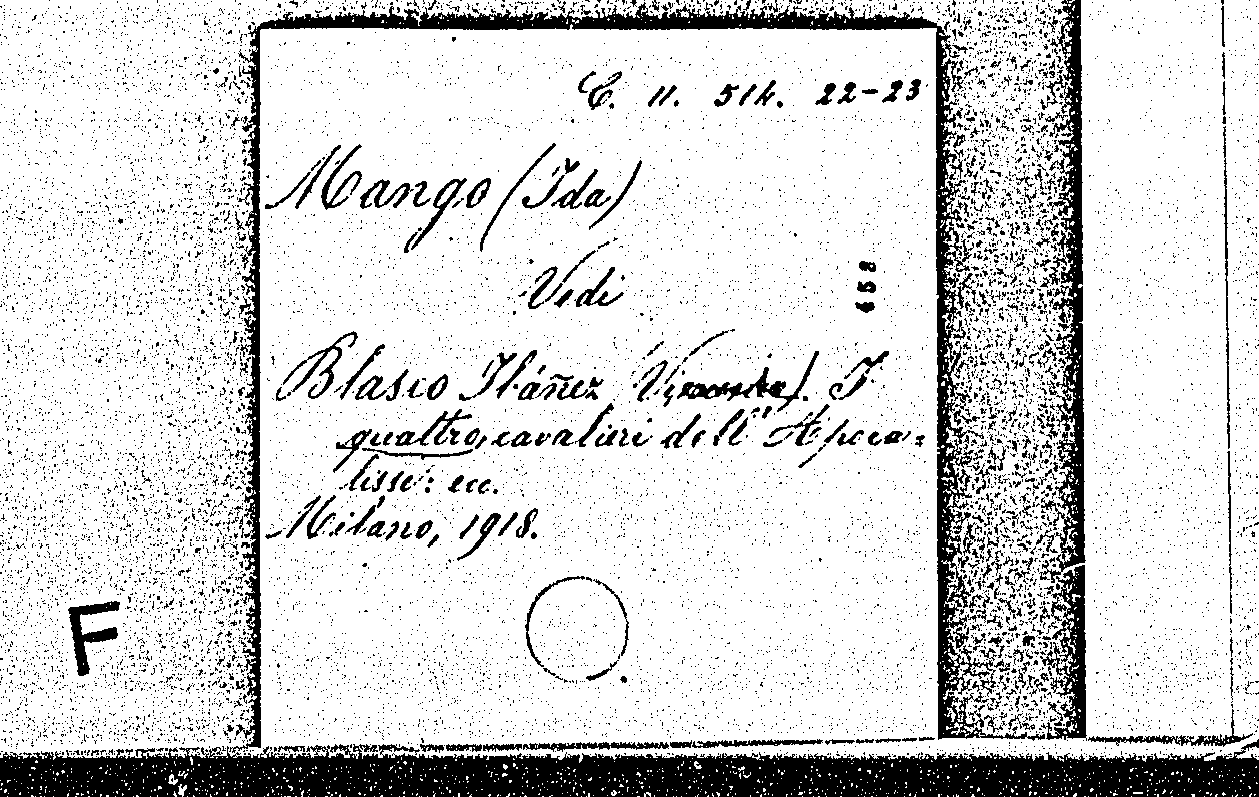 C. 11. 514. 22-23
Mango (Ida)
Vedi
458
Blasco Ibáñez (Vicente). I
quattro cavalieri dell'Apoca=
lisse: ecc.
Milano, 1918.
F